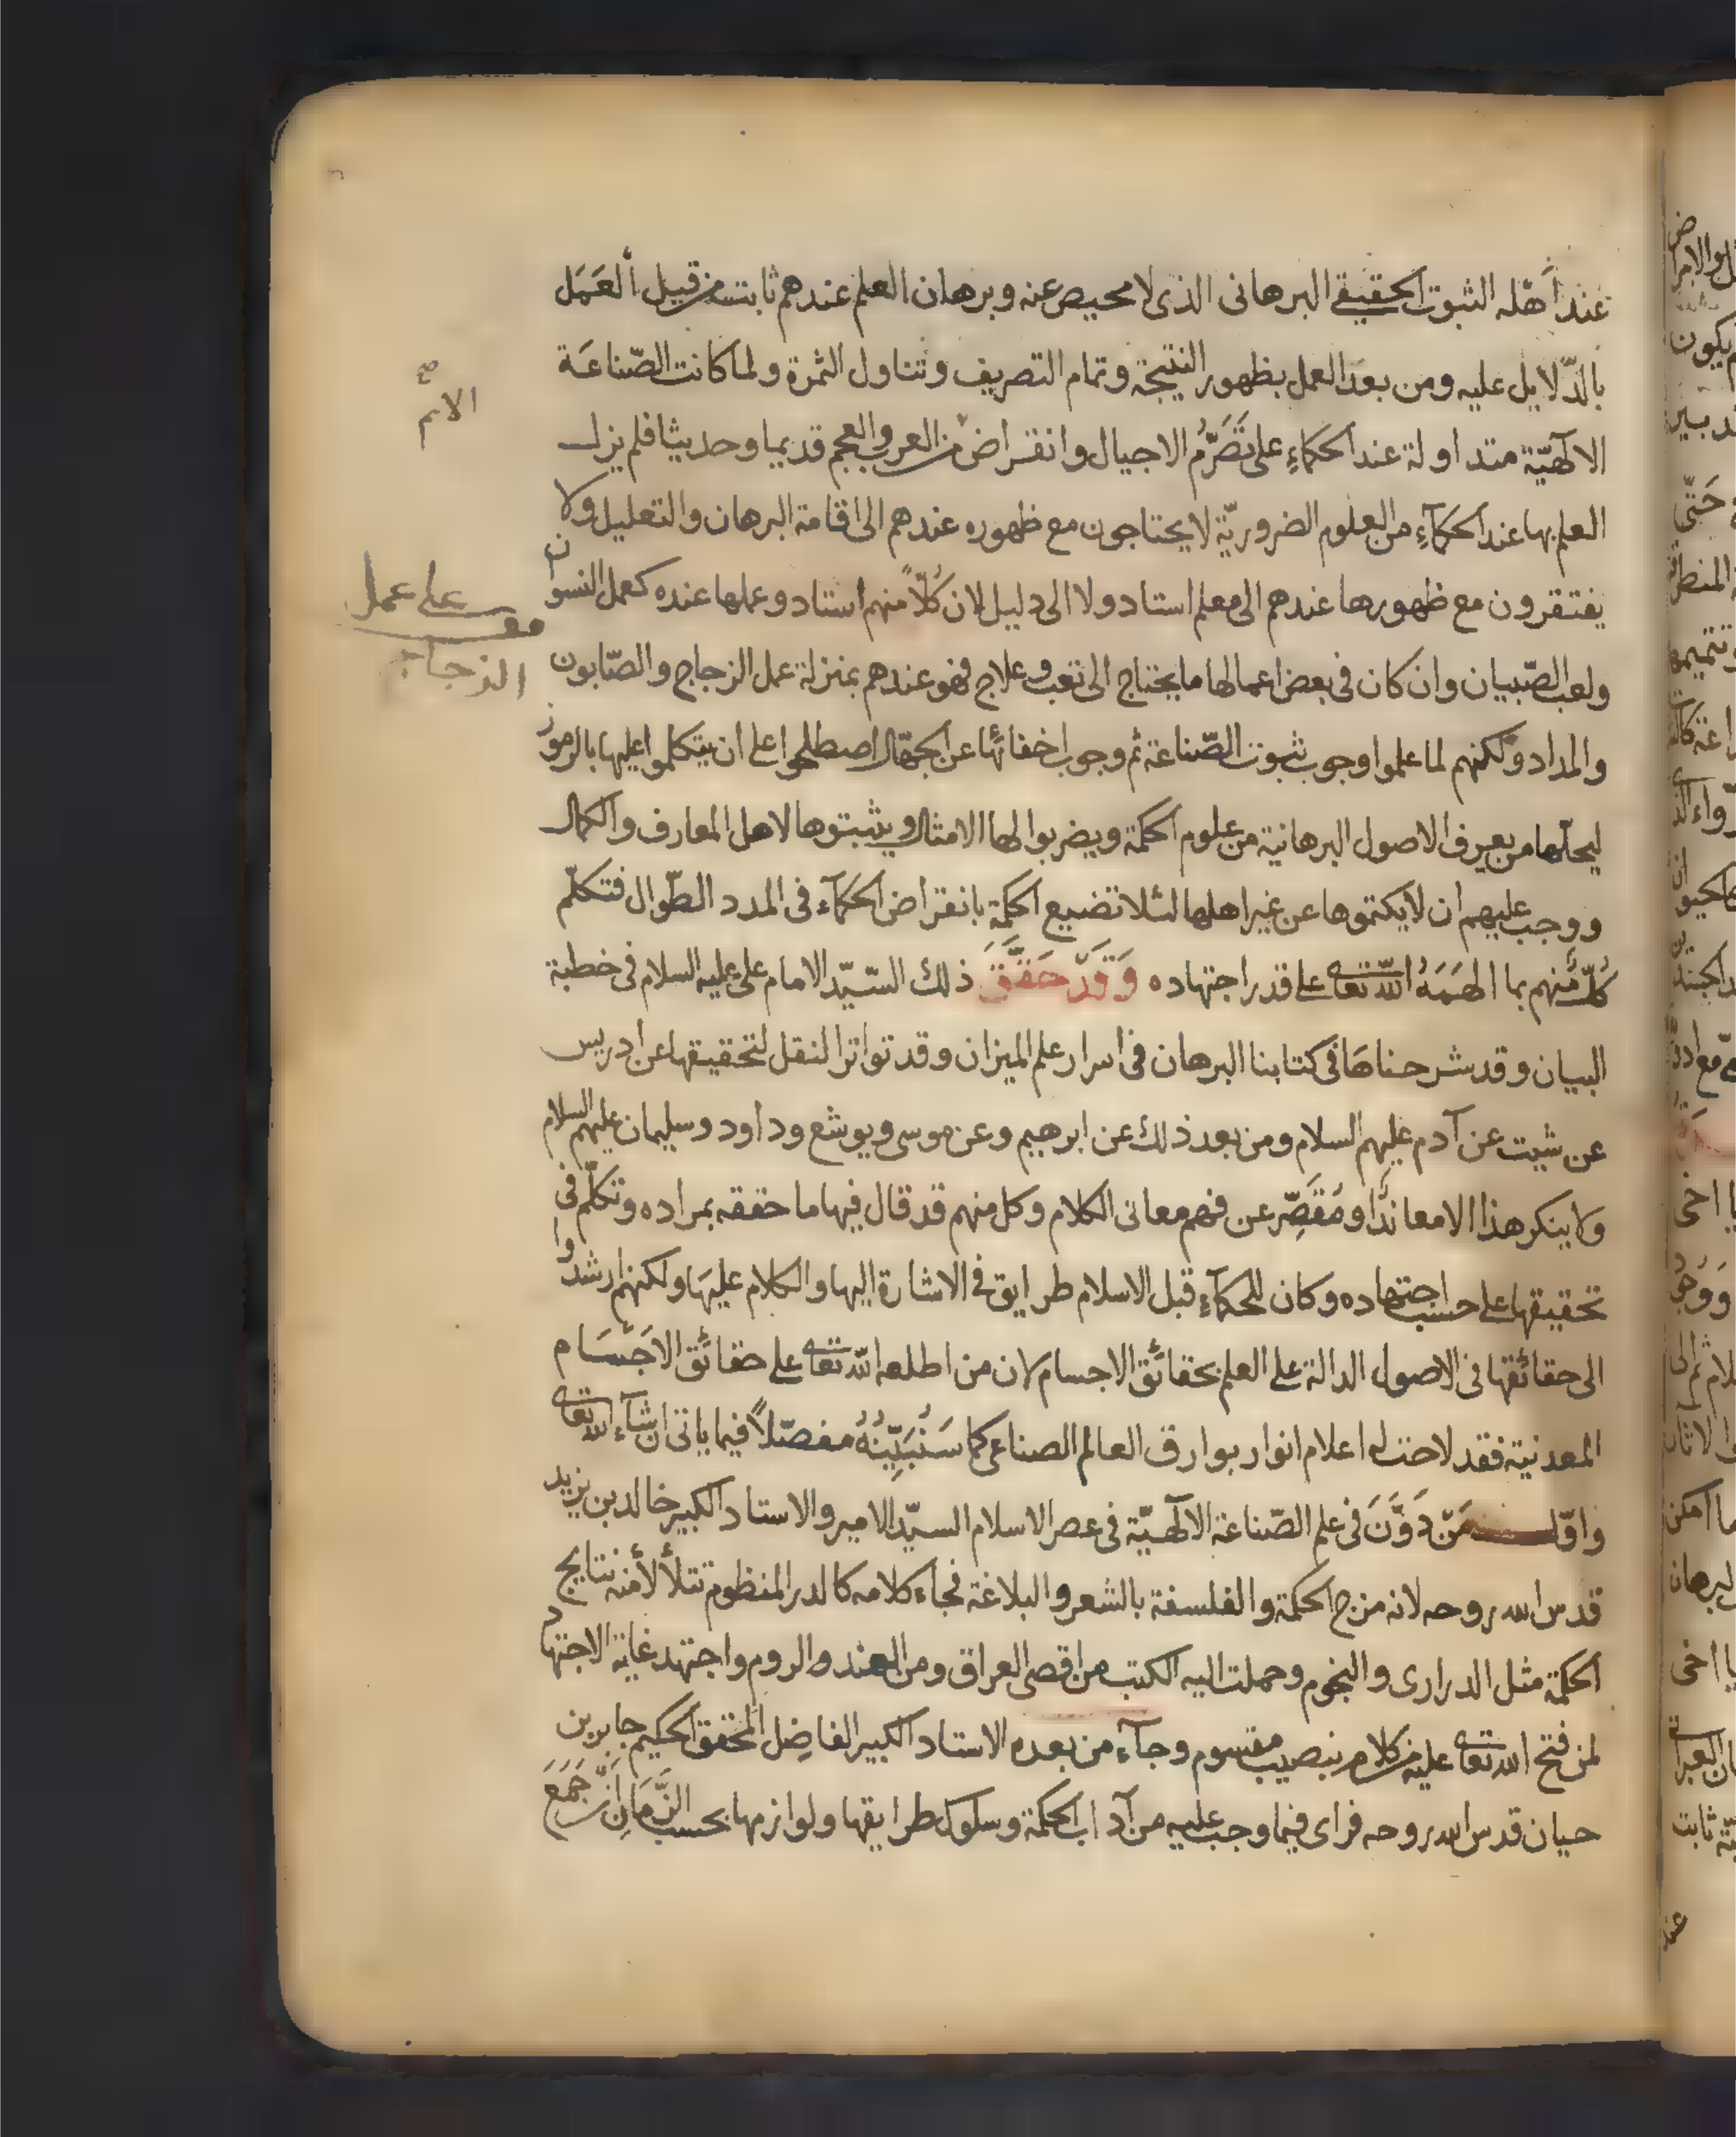 عند أهله الثبوت الحقيقى البرهانى الذى لا محيص عنه وبرهان العلم عندهم ثابت من قبيل العمل
بالدّلايل عليه ومن بعد العمل بظهور النتيجة وتمام التصريف وتناول الثمرة ولما كانت الصّناعة
الالٓهيّة متداولة عند الحكماء على تَصَرُّم الاجيال وانقراض من العرب والعجم قديما وحديثا فلم يزل
العلم بها عند الحكمآءِ من العلوم الضروريّة لا يحتاجون مع ظهوره عندهم الى اقامة البرهان والتعليل ولا
يفتقرون مع ظهورها عندهم الى معلم استاد ولا الى دليل لان كُلّاً منهم استاد وعملها عنده كعمل النسوان
ولعب الصّبيان وان كان فى بعض اعمالها ما يحتاج الى تعب وعلاج فهو عندهم بمنزلة عمل الزجاج والصّابون
والمداد ولكنهم لما علموا وجوب ثبوت الصّناعة ثم وجوب اخفائها عن الجهّال اصطلحوا على ان يتكلموا عليها بالرموز
ليحلّها من يعرف الاصول البرهانية من علوم الحكمة ويضربوا لها الامثال ويثبتوها لاهل المعارف والكمال
ووجب عليهم ان لا يكتموها عن غير اهلها لئلا تضيع الحكمة بانقراض الحكمآء فى المدد الطّوال فتكلّم
كُلٌّ منهم بما الهَمَهُ اللّه تعالى على قدر اجتهاده وَقَدْ حَقَّقَ ذلك السّيّد الامام على عليه السلام فى خطبة
البيان وقد شرحناها فى كتابنا البرهان فى اسرار علم الميزان وقد تواتر النقل لتحقيقها عن ادريس
عن شيت عن آدم عليهم السلام ومن بعد ذلك عن ابرهيم وعن موسى ويوشع وداود وسليمان عليهم السلام
ولا ينكر هذا الا معاندًا ومُقَصِّر عن فهم معانى الكلام وكل منهم قد قال فيها ما حققه بمراده وتكلّم فى
تحقيقها على حسب اجتهاده وكان للحكمآء قبل الاسلام طرايق فى الاشارة اليها والكلام عليها ولكنهم ارشدوا
الى حقائقها فى الاصول الدالة على العلم بحقائق الاجسام لان من اطلعه اللّه تعالى على حقائق الاَجْسَام
المعدنية فقد لاحت له اعلام انوار بوارق العالم الصناعى كما سَنُبَيِّنُهُ مفصّلاً فيما ياتى ان شآء الله تعالى
واوّل مَنْ دَوَّنَ فى علم الصّناعة الالٓهيّة فى عصر الاسلام السيّد الامير والاستاد الكبير خالد بن يزيد
قدس الله روحه لانه مزج الحكمة والفلسفة بالشعر والبلاغة فجاء كلامه كالدر المنظوم تتلألأ منه نتايج
الحكمة مثل الدرارى والنجوم وحملت اليه الكتب من اقصى العراق ومن الهند والروم واجتهد غاية الاجتهاد
لمن فتح الله تعالى عليه من كلامه بنصيب مقسوم وجآء من بعده الاستاد الكبير الفاضِل المحقق الحكيم جابر بن
حيان قدس الله روحه فراى فيما وجب عليه من آداب الحكمة وسلوك طرايقها ولوازمها بحسب الزَّمَانِ اَنْ جَمَعَ
صح
الامم
على عمل
الزجاج
عند